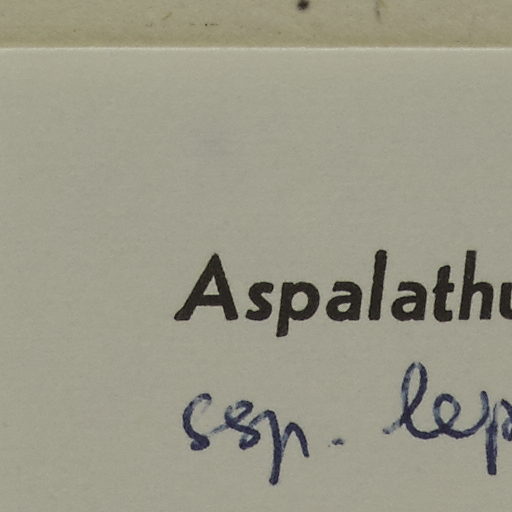 Aspalathu
ssp. lep